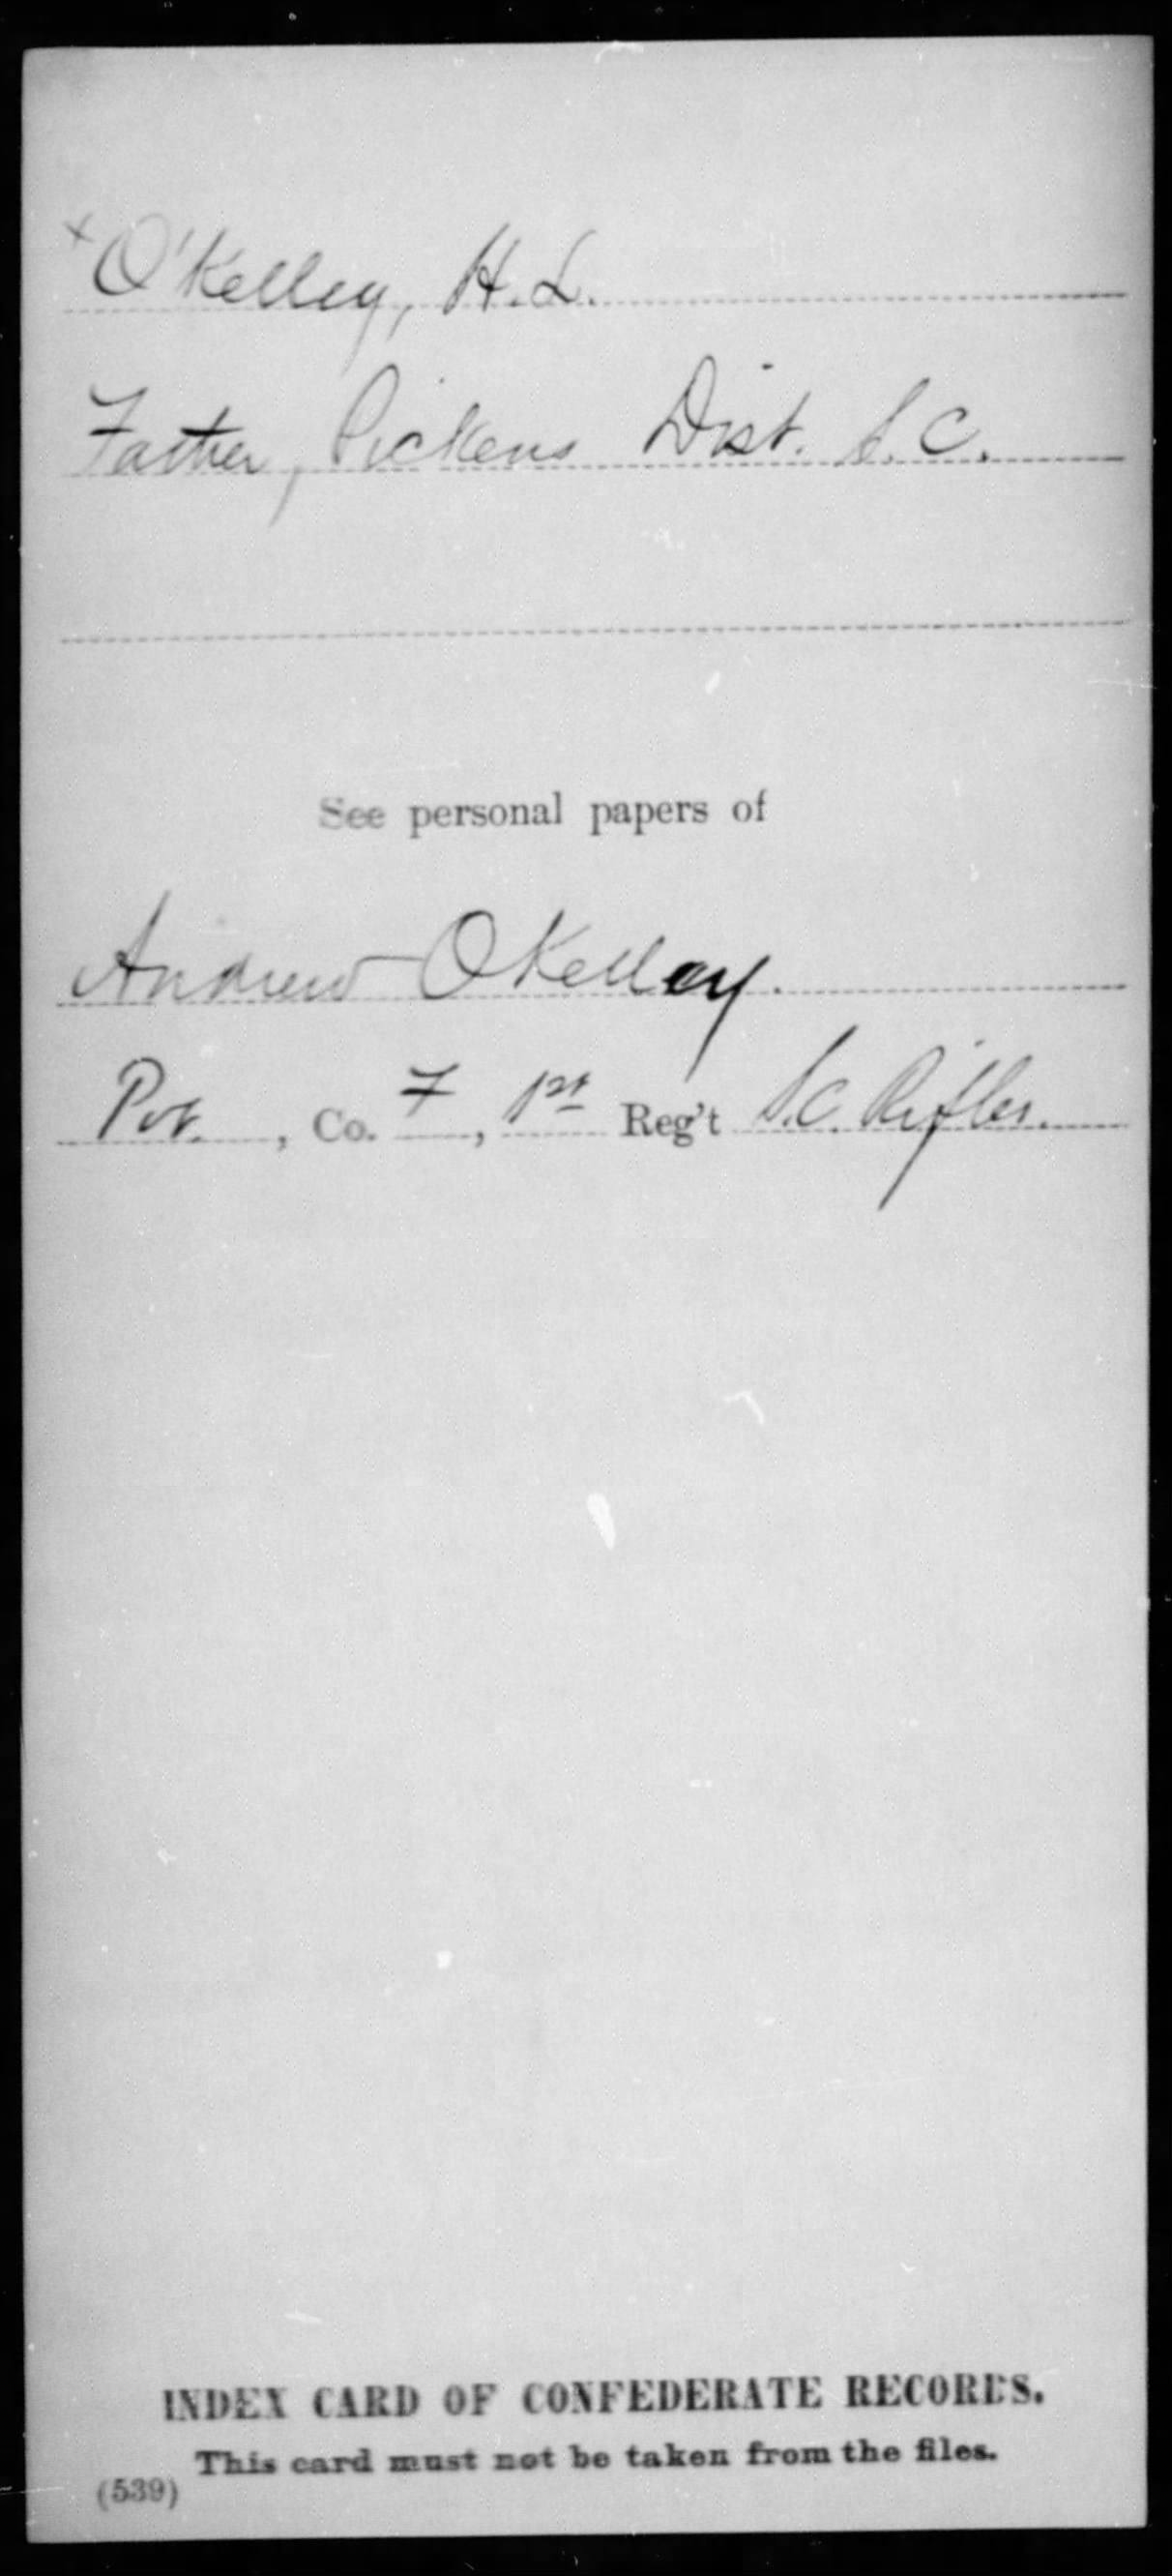 x O'Kelley, H. L.
Father, Pickens Dist. S. C.
See personal papers of
Andrew OKelley.
Pvt., Co. F, 1st Reg't S.C. Rifles.
INDEX CARD OF CONFEDERATE RECORDS.
This card must not be taken from the files.
(539)